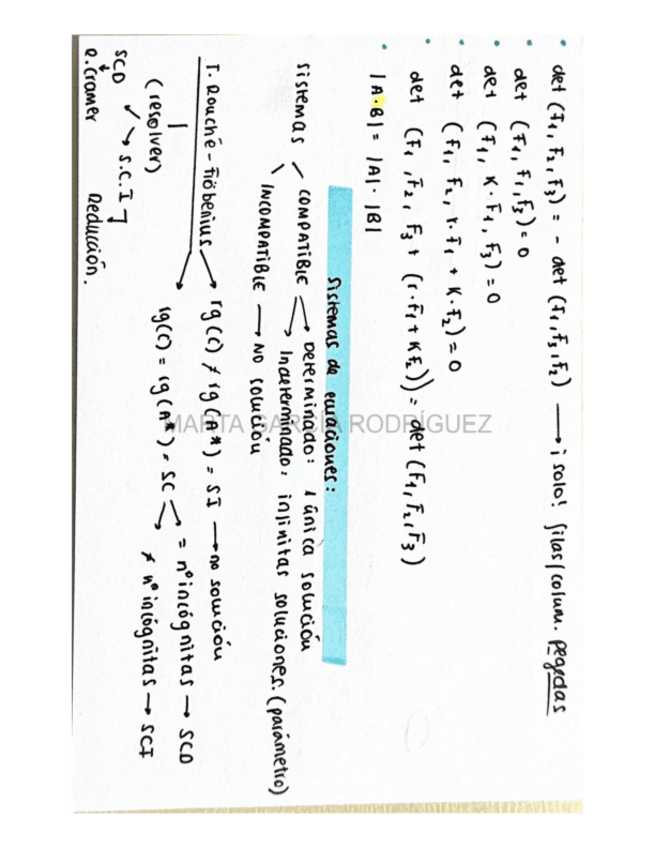 • det (F₁, F₂, F₃) = - det (F₁, F₃, F₂) → ¡solo! filas/colum. pegadas
• det (F₁, F₁, F₃) = 0
• det (F₁, K·F₁, F₃) = 0
• det (F₁, F₂, r·F₁ + K·F₂) = 0
• det (F₁, F₂, F₃ + (r·F₁ + KF₂)) = det (F₁, F₂, F₃)
• |A·B| = |A|·|B|
Sistemas de ecuaciones:
Sistemas
COMPATIBLE → Determinado: 1 única solución
→ Indeterminado: infinitas soluciones. (parámetro)
INCOMPATIBLE → NO solución
MARTA GARCÍA RODRÍGUEZ
T. Rouché-Fröbenius
rg(C) ≠ rg(A*) = SI → no solución
rg(C) = rg(A*) = SC → = nº incógnitas → SCD
→ ≠ nº incógnitas → SCI
(resolver)
SCD
S.C.I
R.Cramer
Reducción.